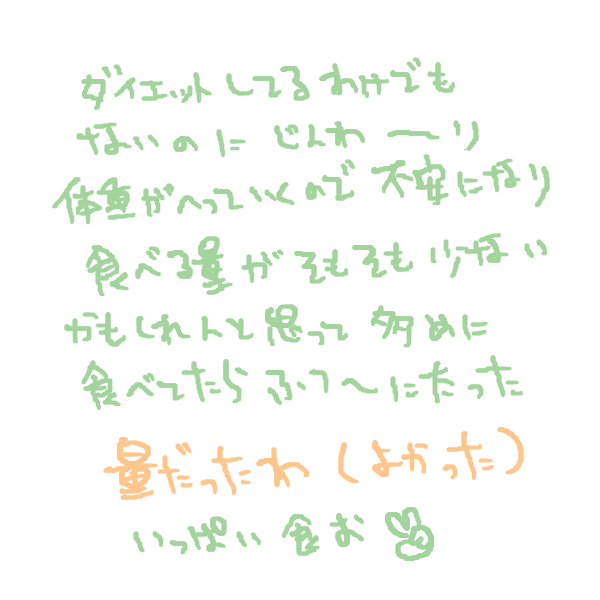 ダイエットしてるわけでも
ないのに じんわ〜り
体重がへっていくので 不安になり
食べる量が そもそも 少ない
かもしれんと思って 多めに
食べてたら ふつ〜にたった
量だったわ(よかった)
いっぱい 食お